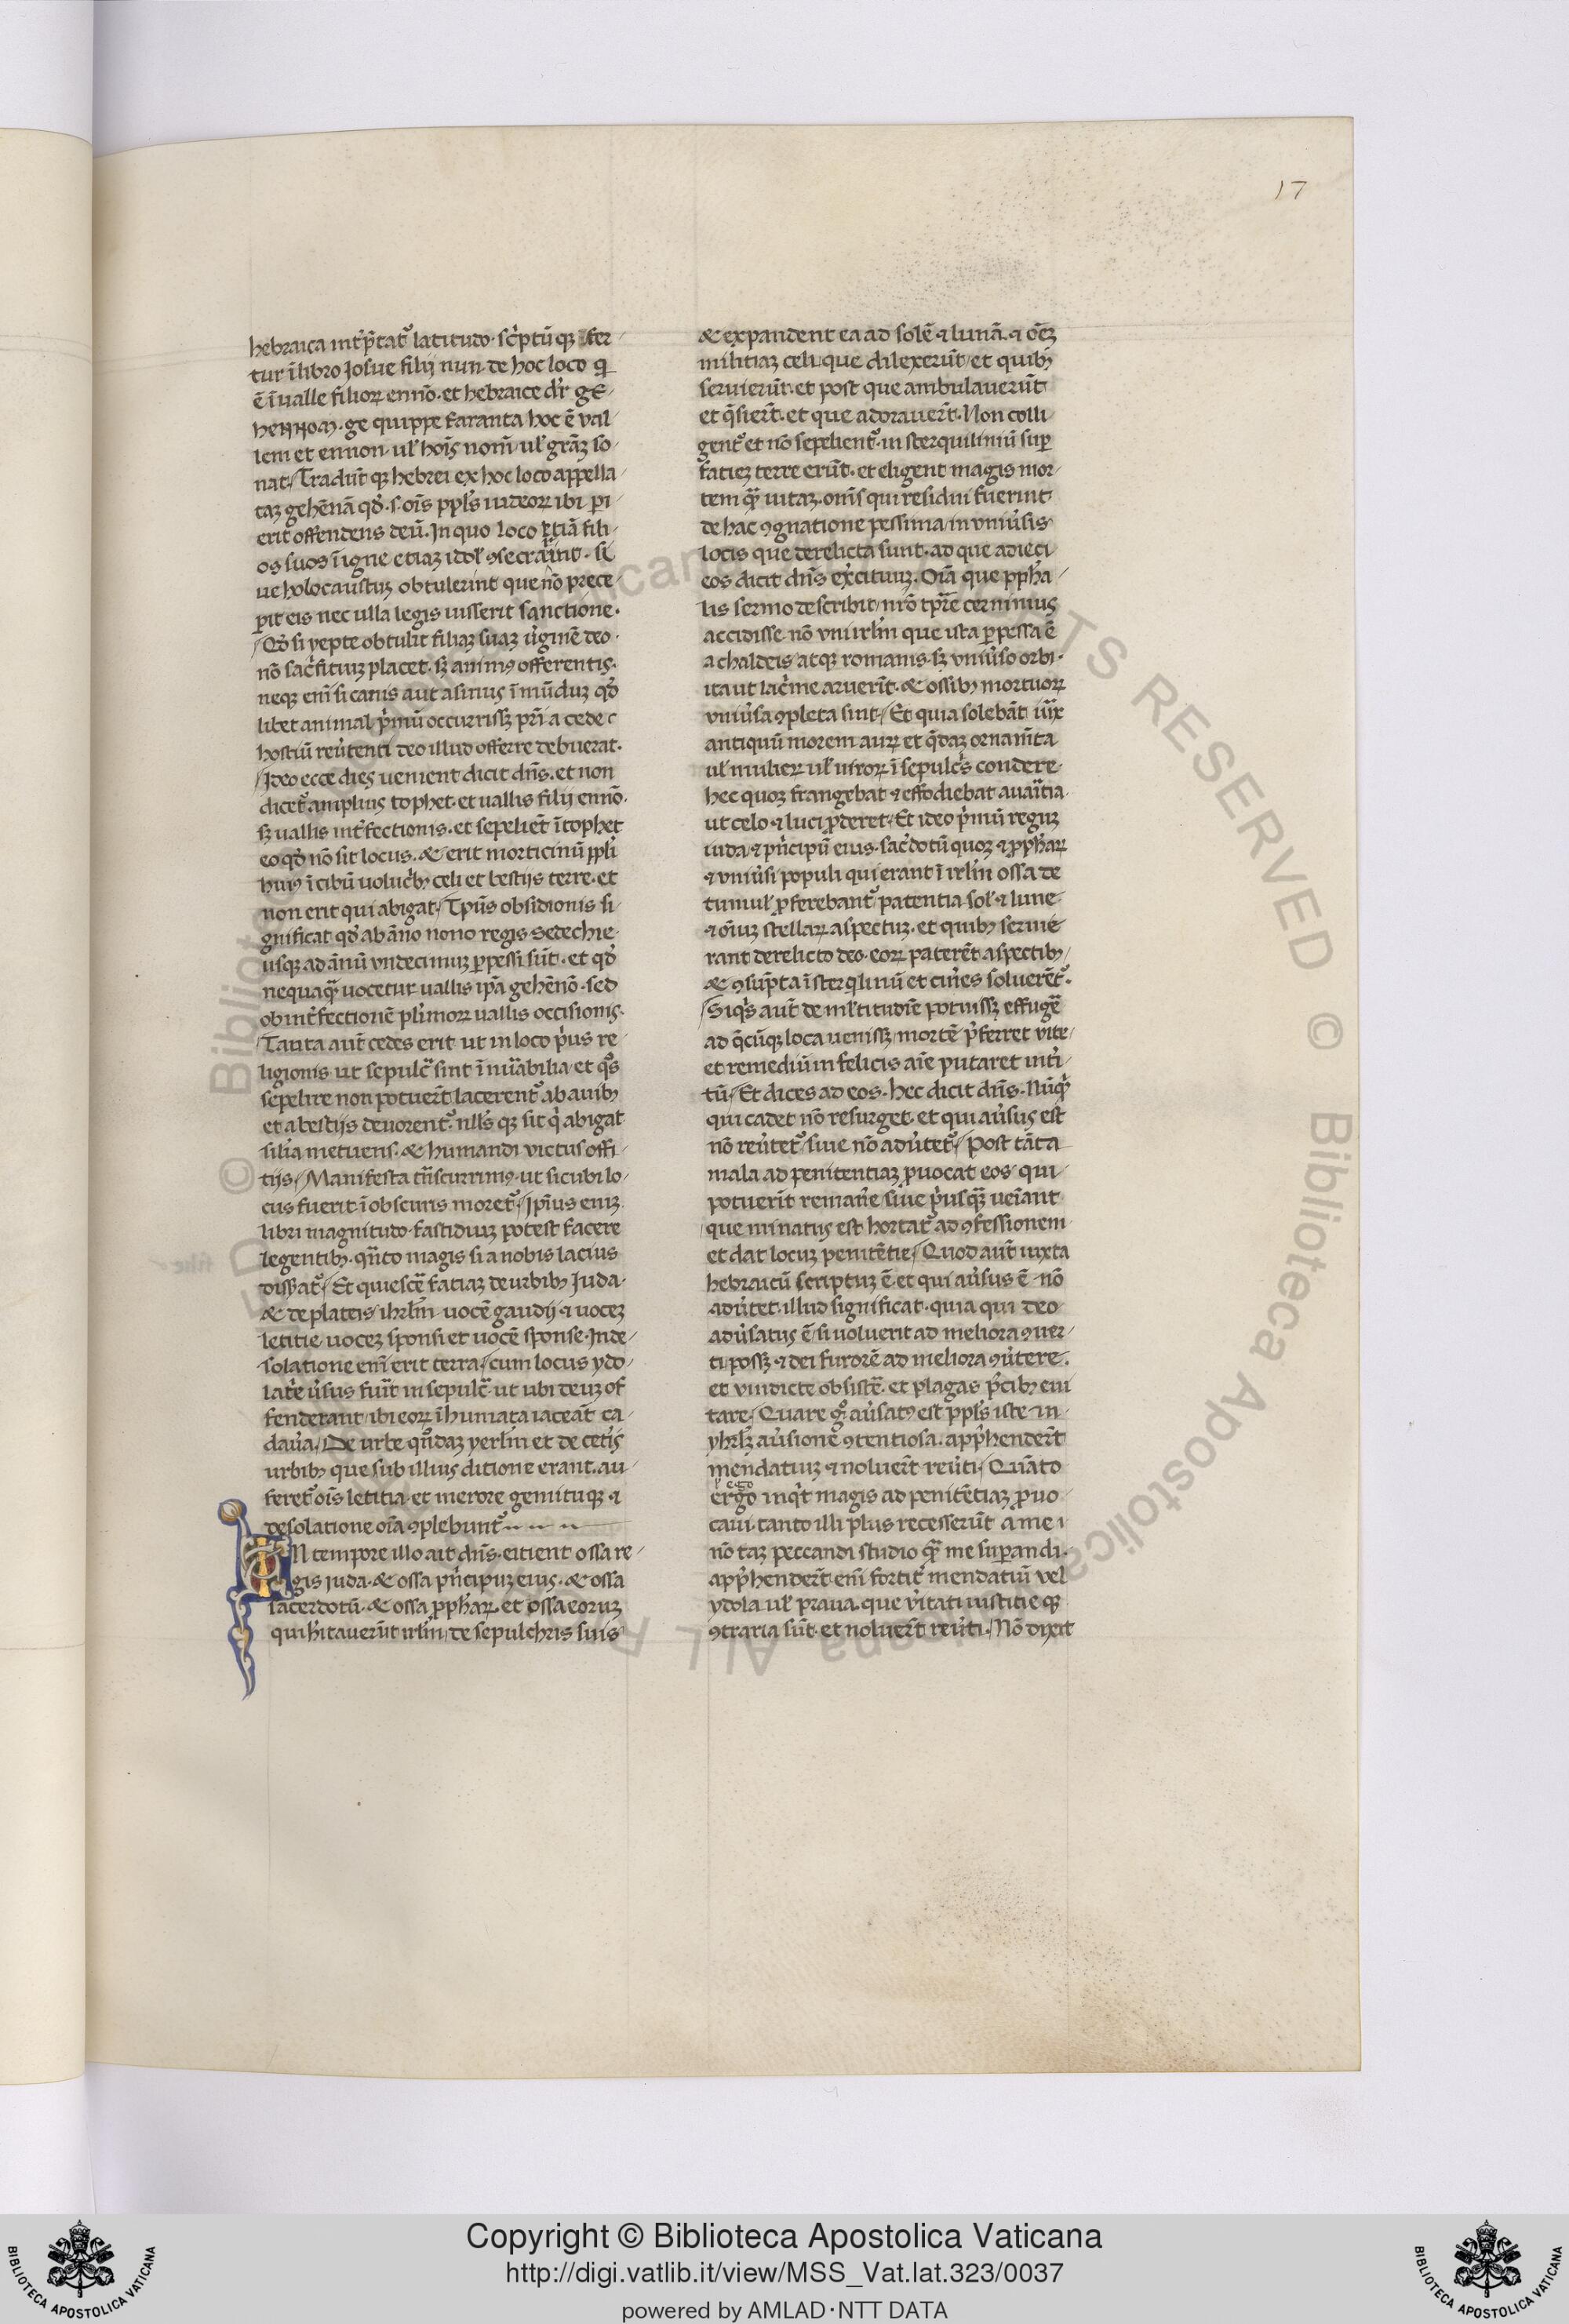 17
hebraica int̾p̄tat᷒ latitudo · sc̾ptū qꝫ fer
tur ī libro Josue filij nun · de hoc loco q̇
ē ī ualle filioꝝ ennō · et hebraice dr̄ ge
hennom · ge quippe faranta hoc ē val
lem et ennon · ul̾ hoīs nom̄ · ul̾ gr̄aꝫ so
nat / Tradūt qꝫ hebrei ex hoc loco appella
taꝫ gehēnā qd̾ · s · oīs ppl̾s iudeoꝝ ibi ꝑi
erit offendens deū · In quo loco etiā fili
os suos ī igne etiaꝫ idol̾ ꝯsecrarint · si
ue holocaustuꝫ obtulerint que nō prece
pit eis nec ulla legis iusserit sanctione ·
Qd̾ si yepte obtulit filiaꝫ suaꝫ u̾ginē deo ·
nō sac̾fitiuꝫ placet · sꝫ animꝰ offerentis ·
neqꝫ eni̅ si canis aut asinus ī mūduꝫ qd̾
libet animal p̾mū occurrissꝫ pr̄i a cede
hostiū reu̾tenti deo illud offerre debuerat ·
Ideo ecce dies uenient dicit dn̄s · et non
dicet᷒ amplius tophet · et uallis filij ennō ·
sꝫ uallis int̾fectionis · et sepeliēt ī tophet
eo qd̾ nō sit locus · & erit morticinū ppl̾i
huiꝰ ī cibū uoluc̾bꝫ celi et bestijs terre · et
non erit qui abigat / Tpūs obsidionis si
gnificat qd̾ ab āno nono regis Sedechie ·
usqꝫ ad ānū vndecimuꝫ ꝑpessi sūt · et qd̾
nequaq̄ uocetur uallis ip̄a gehēnō · sed
ob int̾fectionē pl̾imoꝝ uallis occisionis ·
Tanta aut̄ cedes erit ut in loco p̾us re
ligionis ut sepulc̄ sint ī nu̅abilia · et q̾s
sepelire non potuerīt lacerent᷒ ab auibꝫ
et a bestijs deuorent᷒ · nll̾s qꝫ sit q̾ abigat
sil̾ia metuens · & humandi victus offi
tijs / Manifesta tn̄scurrimꝰ · ut sicubi lo
cus fuerit ī obscuris moret᷒ / Ip̄ius eniꝫ
libri magnitudo · fastidiuꝫ potest facere
legentibꝫ · qn̄to magis si a nobis lacius
dissꝑat᷒ / Et quiescē fatiaꝫ de urbibꝫ Juda ·
& de plateis ihrl̄m · uocē gaudij ⁊ uoceꝫ
letitie · uoceꝫ sponsi et uocē sponse · In de
solatione eni̅ erit terra / cum locus ydo
latr̄e u̾sus fu̅it in sepulc̄ · ut ubi deuꝫ of
fenderant / ibi eoꝝ ī humata iaceāt ca
dau̾a / De urbe qn̄daꝫ yerl̄m et de cet̾is
urbibꝫ que sub illius ditione erant · au
feret᷒ oīs letitia · et merore gemitu qꝫ ⁊
desolatione oīa ꝯplebunt᷒
IN tempore illo ait dn̄s · eitient ossa re
gis Juda · & ossa pn̄cipuꝫ eius · & ossa
sacerdotū · & ossa ꝓphaꝝ · et ossa eoruꝫ
qui hītauerūt irl̄m / de sepulchris suis
& expandent ea ad solē ⁊ lunā · ⁊ oēꝫ
militiaꝫ celi · que dilexerūt / et quibꝫ
seruierūt · et post que ambulauerūt
et q̄sierūt · et que adorauerūt · Non colli
gent᷒ et nō sepelient᷒ · in sterquiliniū suꝑ
fatieꝫ terre erūt · et eligent magis mor
tem q̄ uitaꝫ · om̄s qui residui fuerint
de hac ꝯgnatione pessima / in vniu̾sis
locis que derelicta sunt · ad que adieci
eos dicit dn̄s exc̾ituuꝫ · Oīa que ppha
lis sermo describit / nr̄o tp̄re cernimus
accidisse nō vni irl̄m que ista ꝑpessa ē
a chaldeis atqꝫ romanis · sꝫ vniu̾so orbi ·
ita ut lac̾me aruerīt · & ossibꝫ mortuoꝝ
vniu̾sa ꝯpleta sint / Et quia solebāt iux̄
antiquū morem auꝝ et q̄daꝫ ornam̄ta
ul̾ mulieꝝ ul̾ uiroꝝ ī sepulc̾s condere ·
hec quoꝫ frangebat ⁊ effodiebat auaritia ·
ut celo ⁊ luci ꝓderet / Et ideo p̾mū reguꝫ
iuda ⁊ pn̄cipū eius · sac̾dotū quoꝫ ⁊ ꝓphaꝝ
⁊ vniu̾si populi qui erant ī irl̄m ossa de
tumul̾ ꝓferebant᷒ patentia sol̾ ⁊ lune
⁊ oīuꝫ stellaꝝ aspectuꝫ · et quibꝫ seruie
rant derelicto deo · eoꝝ paterēt aspectibꝫ
& ꝯsūpta ī sterq̾liniū et cin̾es soluerēt᷒ ·
Si q̾s aut̄ de ml̾titudīe potuissꝫ effugē
ad q̄cūqꝫ loca uenissꝫ / mortē p̾ferret vite
et remediū infelicis aīe putaret int̾i
tū / Et dices ad eos · hec dicit dn̄s · Nūq̾
qui cadet nō resurget · et qui au̾sus est
nō reu̾tet᷒ / siue nō adu̾tet᷒ / Post tāta
mala ad penitentiaꝫ ꝓuocat eos · qui
potuerīt remanē siue p̾usq̄ ueīant
que minatus est hortat᷒ ad ꝯfessionem
et dat locuꝫ penitētie / Quod aut̄ iuxta
hebraicū scriptuꝫ ē · et qui au̾sus ē nō
adu̾tet · illud significat · quia qui deo
adu̾satus ē / si uoluerit ad meliora ꝯuer
ti possꝫ · ⁊ dei furorē ad meliora ꝯu̾tere ·
et vindicte obsistē · et plagas p̾cibꝫ eui
tare / Quare g° au̾satꝰ est ppl̾s iste in
yhrl̾ꝫ au̾sionē ꝯtentiosa · app̾henderūt
mendatiuꝫ ⁊ noluerūt reu̾ti / Quāto
l' ego
ergo inq̾t magis ad penitētiaꝫ ꝓuo
caui · tanto illi plus recesserūt a me ·
nō taꝫ peccandi studio q̄ me suꝑandi ·
app̾henderūt eni̅ fortit̾ mendatiū vel
ydola ul̾ praua · que u̾itati iustitie qꝫ
ꝯtraria sūt · et noluerūt reu̾ti · Nō dixit
© Biblioteca Apostolica Vaticana ALL RIGHTS RESERVED © Biblioteca Apostolica Vaticana ALL RIGHTS RESERVED
BIBLIOTECA APOSTOLICA VATICANA
Copyright © Biblioteca Apostolica Vaticana
http://digi.vatlib.it/view/MSS_Vat.lat.323/0037
powered by AMLAD·NTT DATA
BIBLIOTECA APOSTOLICA VATICANA